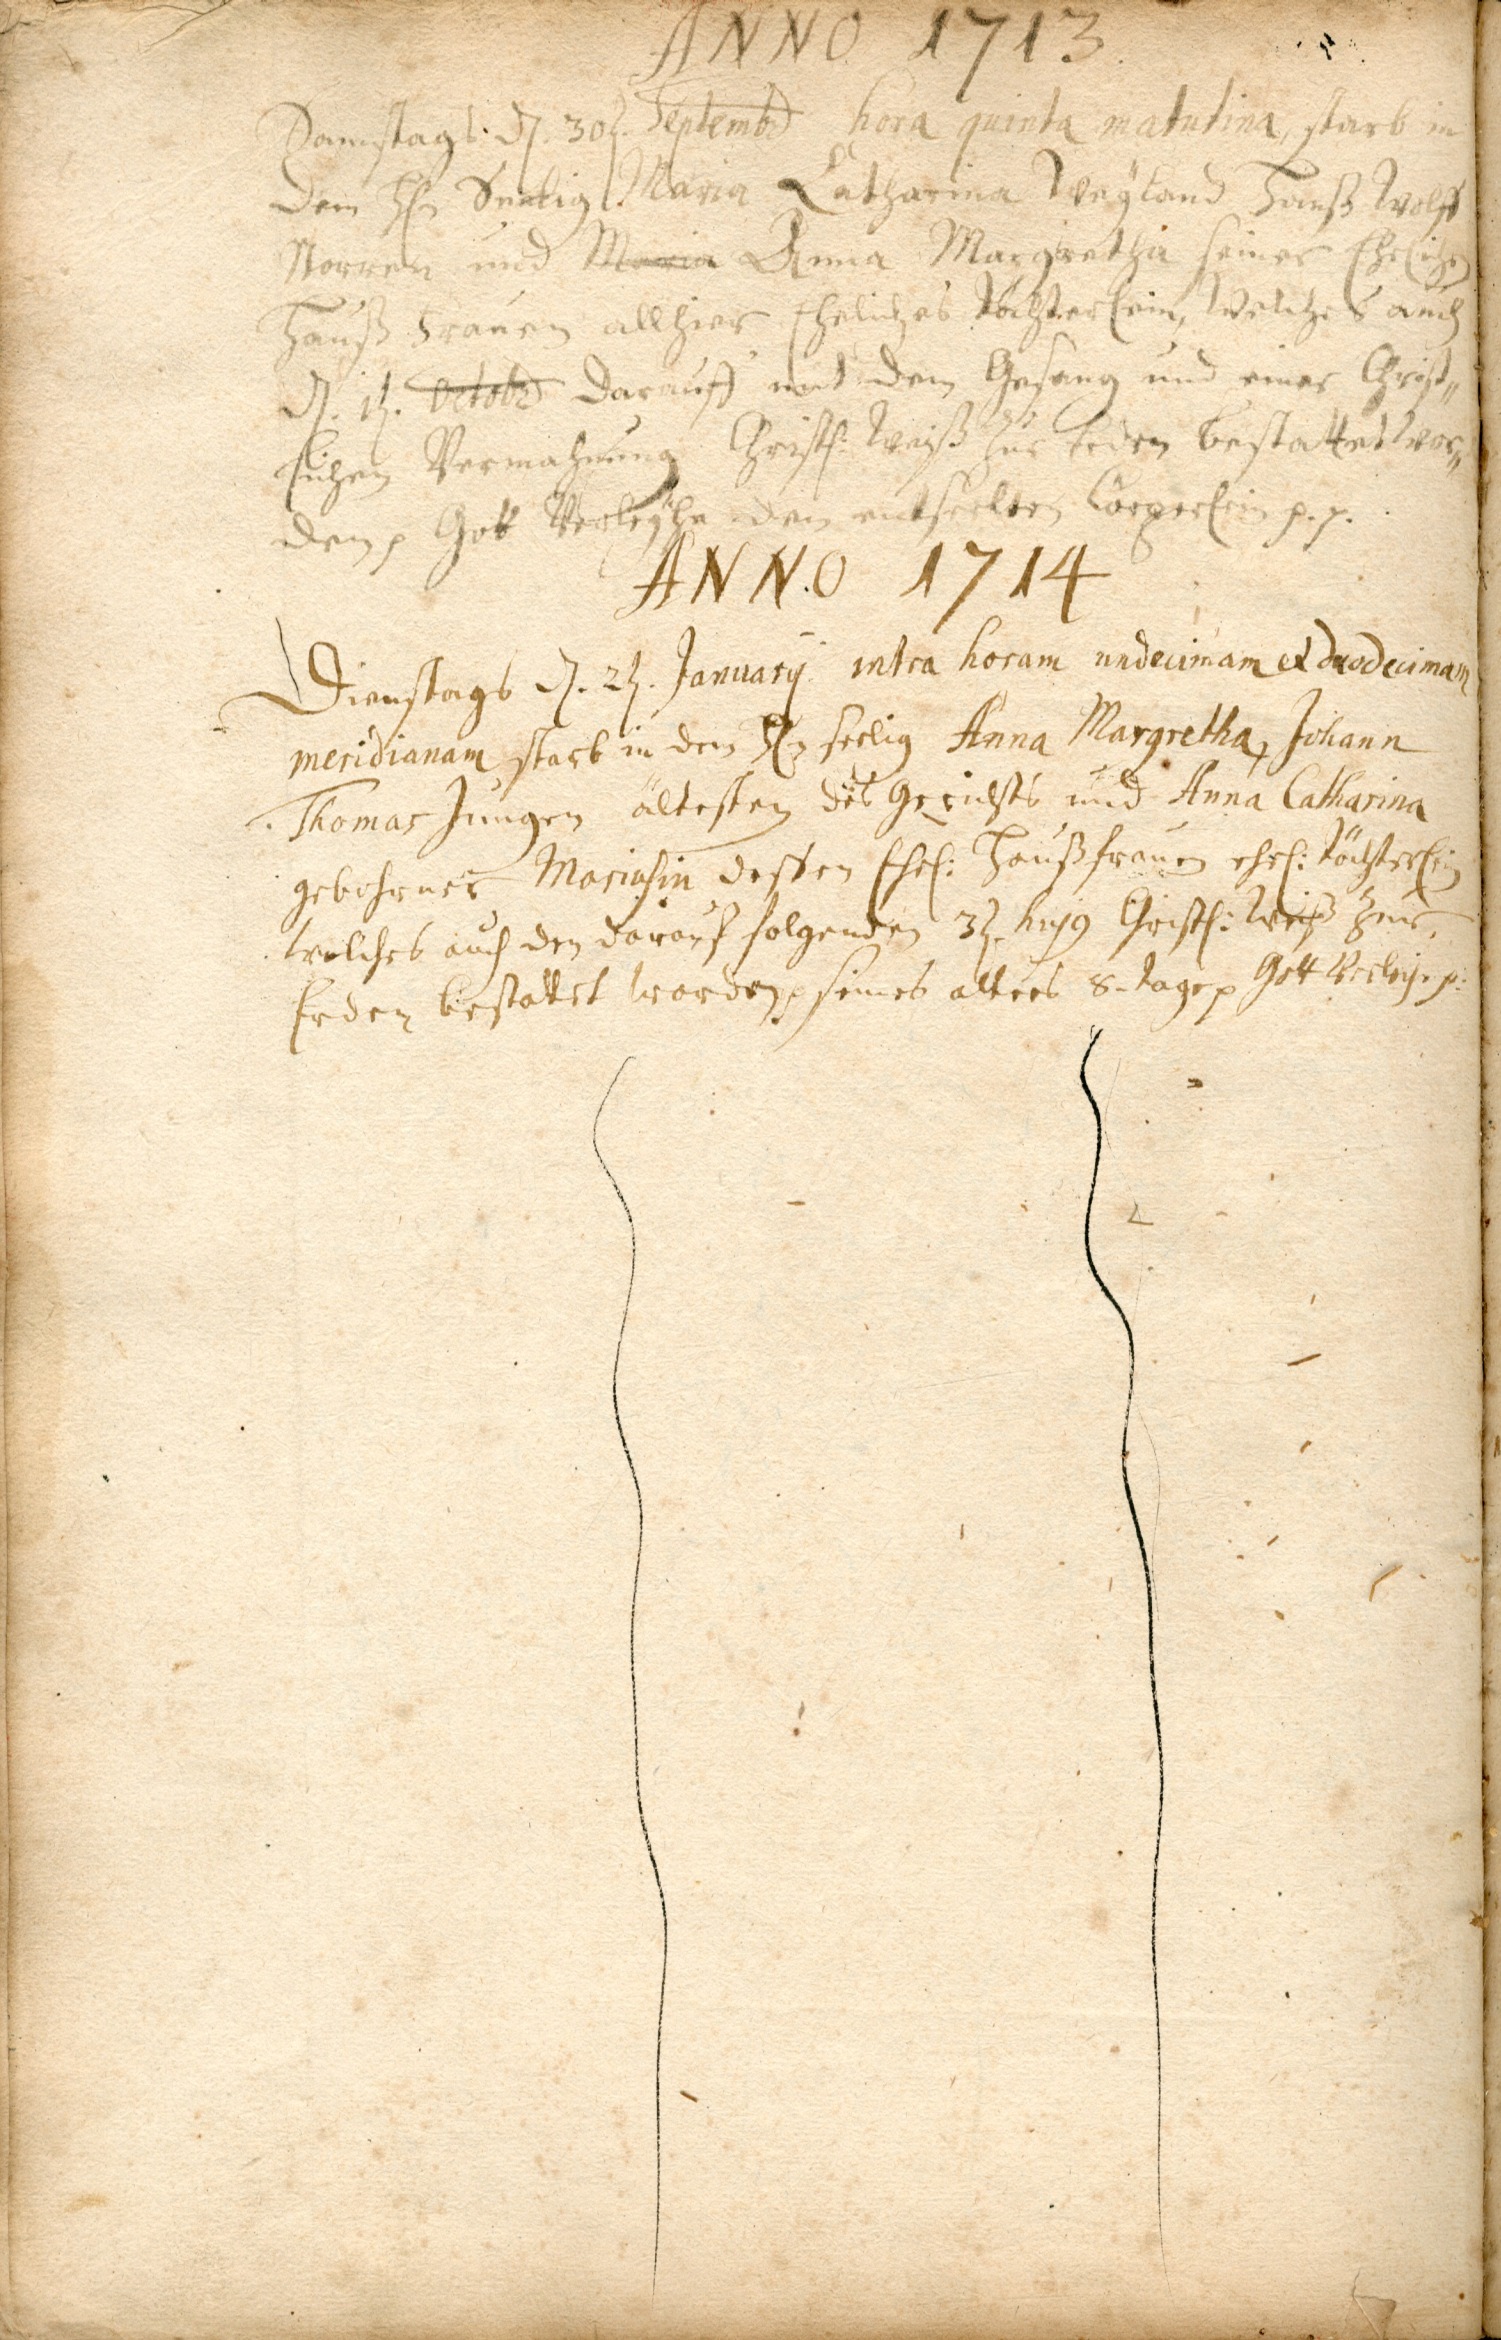 ANNO 1713.
Samstags d. 30t. Septembr hora quinta matutina, starb in
dem Hn Seelig Maria Catharina Weyland Hanß Wolff
Norren und Maria Anna Margretha seiner Ehelichen
Hauß Frauen allhier Eheliches Töchterlein, Welches auch
d. 1t. Octobr darauff mit dem Gesang und einer Christ„
lichen Vermahnung Christl: Weiß zur Erden bestattet wor„
den p Gott Verleyhe dem entseelten Cörperlein p. p.
ANNO 1714
Dienstags d. 2t. January intra horam undecimam et duodecimam
meridianam starb in dem Hn seelig Anna Margretha, Johann
Thomas Jungen ältesten des Gerichts und Anna Catharina
gebohrner dessen Ehel: Haußfrauen ehel: Töchterlein
welches auch den darauf folgenden 3t. huj9 Christl: Weiß zur
Erden bestattet worden, seines alters 8. tage p Gott Verleyhe p: